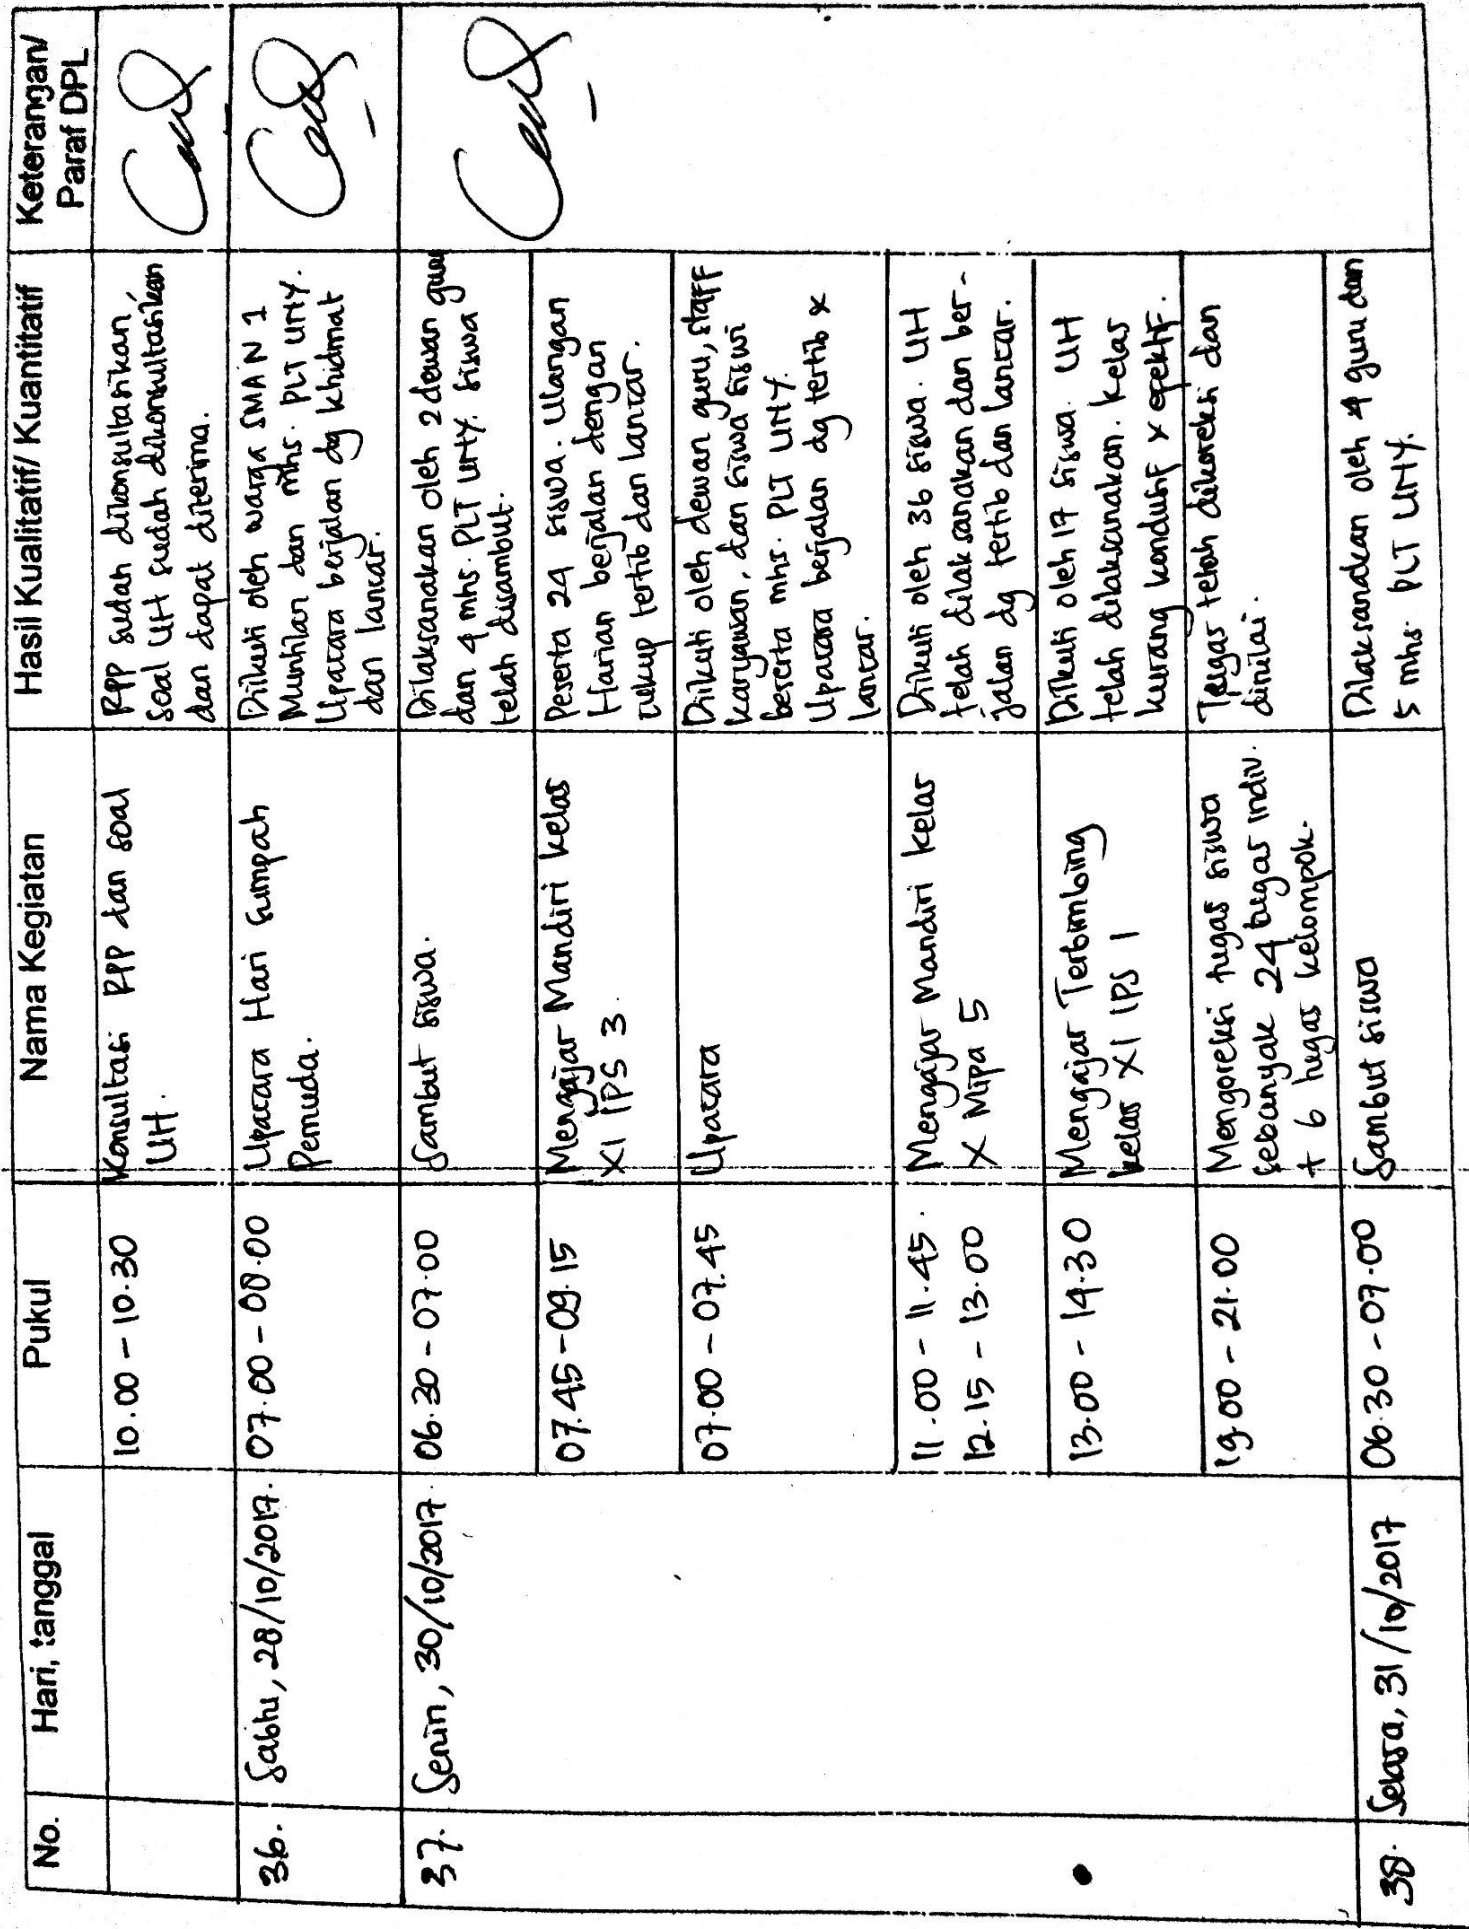 No.
Hari, tanggal
Pukul
Nama Kegiatan
Hasil Kualitatif/ Kuantitatif
Keterangan/
Paraf DPL
10.00 - 10.30
Konsultasi RPP dan soal
UH.
RPP sudah dikonsultasikan,
Soal UH sudah dikonsultasikan
dan dapat diterima.
36.
Sabtu, 28/10/2017.
07.00 - 08.00
Upacara Hari Sumpah
Pemuda.
Diikuti oleh warga SMA N 1
Muntilan dan mhs. PLT UNY.
Upacara berjalan dg khidmat
dan lancar.
37.
Senin, 30/10/2017.
06.30 - 07.00
Sambut siswa.
Dilaksanakan oleh 2 dewan guru
dan 4 mhs. PLT UNY. siswa
telah disambut.
07.45 - 09.15
Mengajar Mandiri kelas
XI IPS 3.
Peserta 24 siswa. Ulangan
Harian berjalan dengan
cukup tertib dan lancar.
07.00 - 07.45
Upacara
Diikuti oleh dewan guru, staff
karyawan, dan siswa siswi
beserta mhs. PLT UNY.
Upacara berjalan dg tertib &
lancar.
11.00 - 11.45.
12.15 - 13.00
Mengajar Mandiri kelas
X Mipa 5
Diikuti oleh 36 siswa. UH
telah dilaksanakan dan ber-
jalan dg tertib dan lancar.
13.00 - 14.30
Mengajar Terbimbing
kelas XI IPS 1
Diikuti oleh 17 siswa. UH
telah dilaksanakan. kelas
kurang kondusif & efektif.
19.00 - 21.00
Mengoreksi tugas siswa
sebanyak 24 tugas indiv.
+ 6 tugas kelompok.
Tugas telah dikoreksi dan
dinilai.
38.
Selasa, 31/10/2017
06.30 - 07.00
Sambut siswa
Dilaksanakan oleh 4 guru dan
5 mhs. PLT UNY.